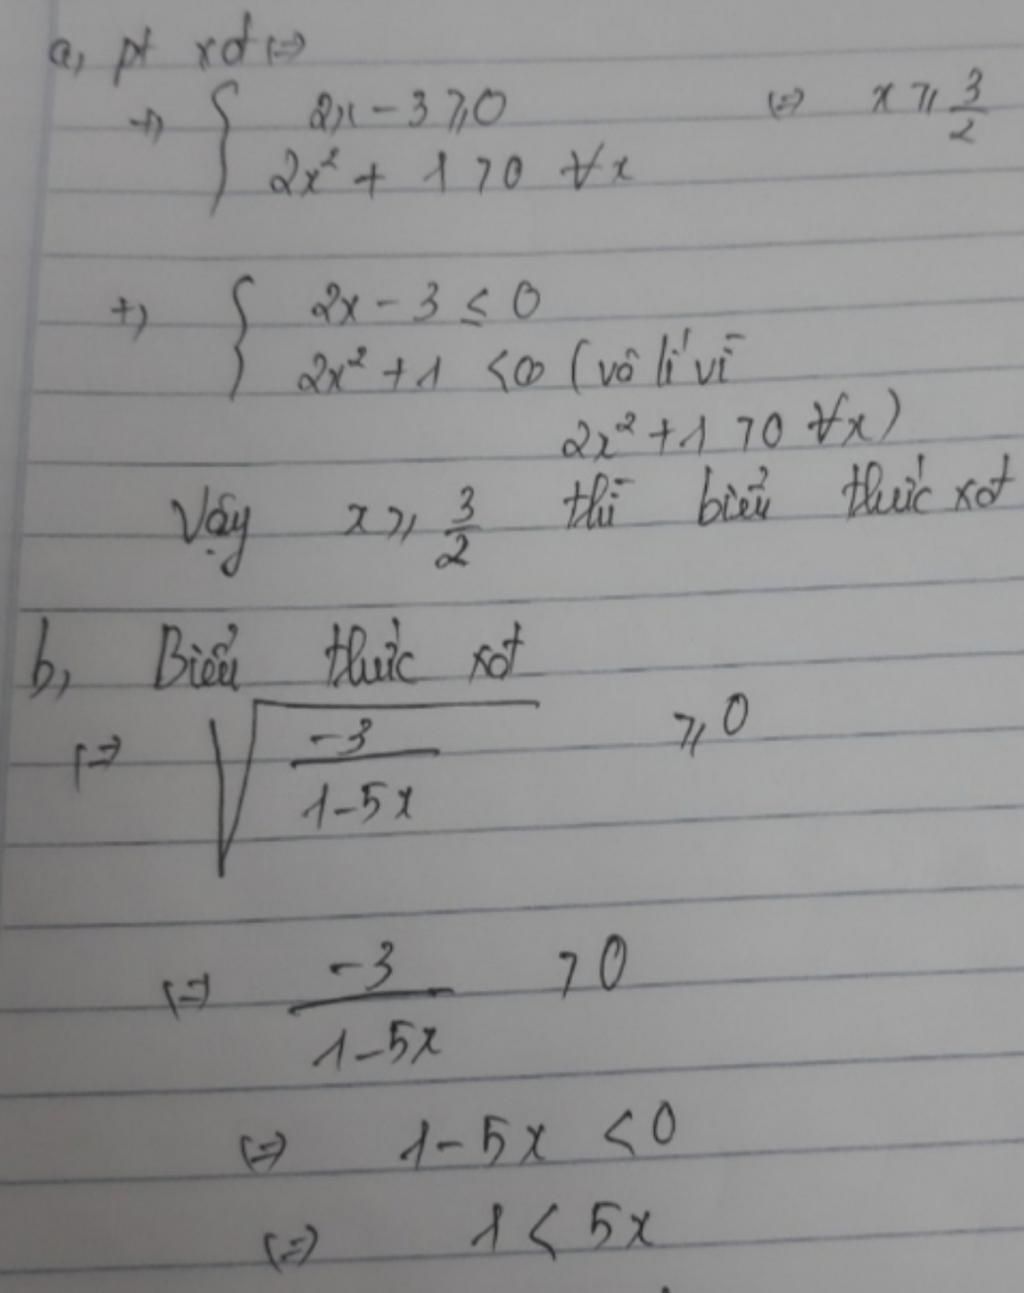 a, pt xđ (=)
+) { 2x - 3 ⩾ 0 (=) x ⩾ 3/2
2x² + 1 > 0 ∀x
+) { 2x - 3 ≤ 0
2x² + 1 < 0 (vô lí vì
2x² + 1 > 0 ∀x)
Vậy x ⩾ 3/2 thì biểu thức xđ
b, Biểu thức xđ
(=) √(-3/(1-5x)) ⩾ 0
(=) -3/(1-5x) > 0
(=) 1-5x < 0
(=) 1 < 5x